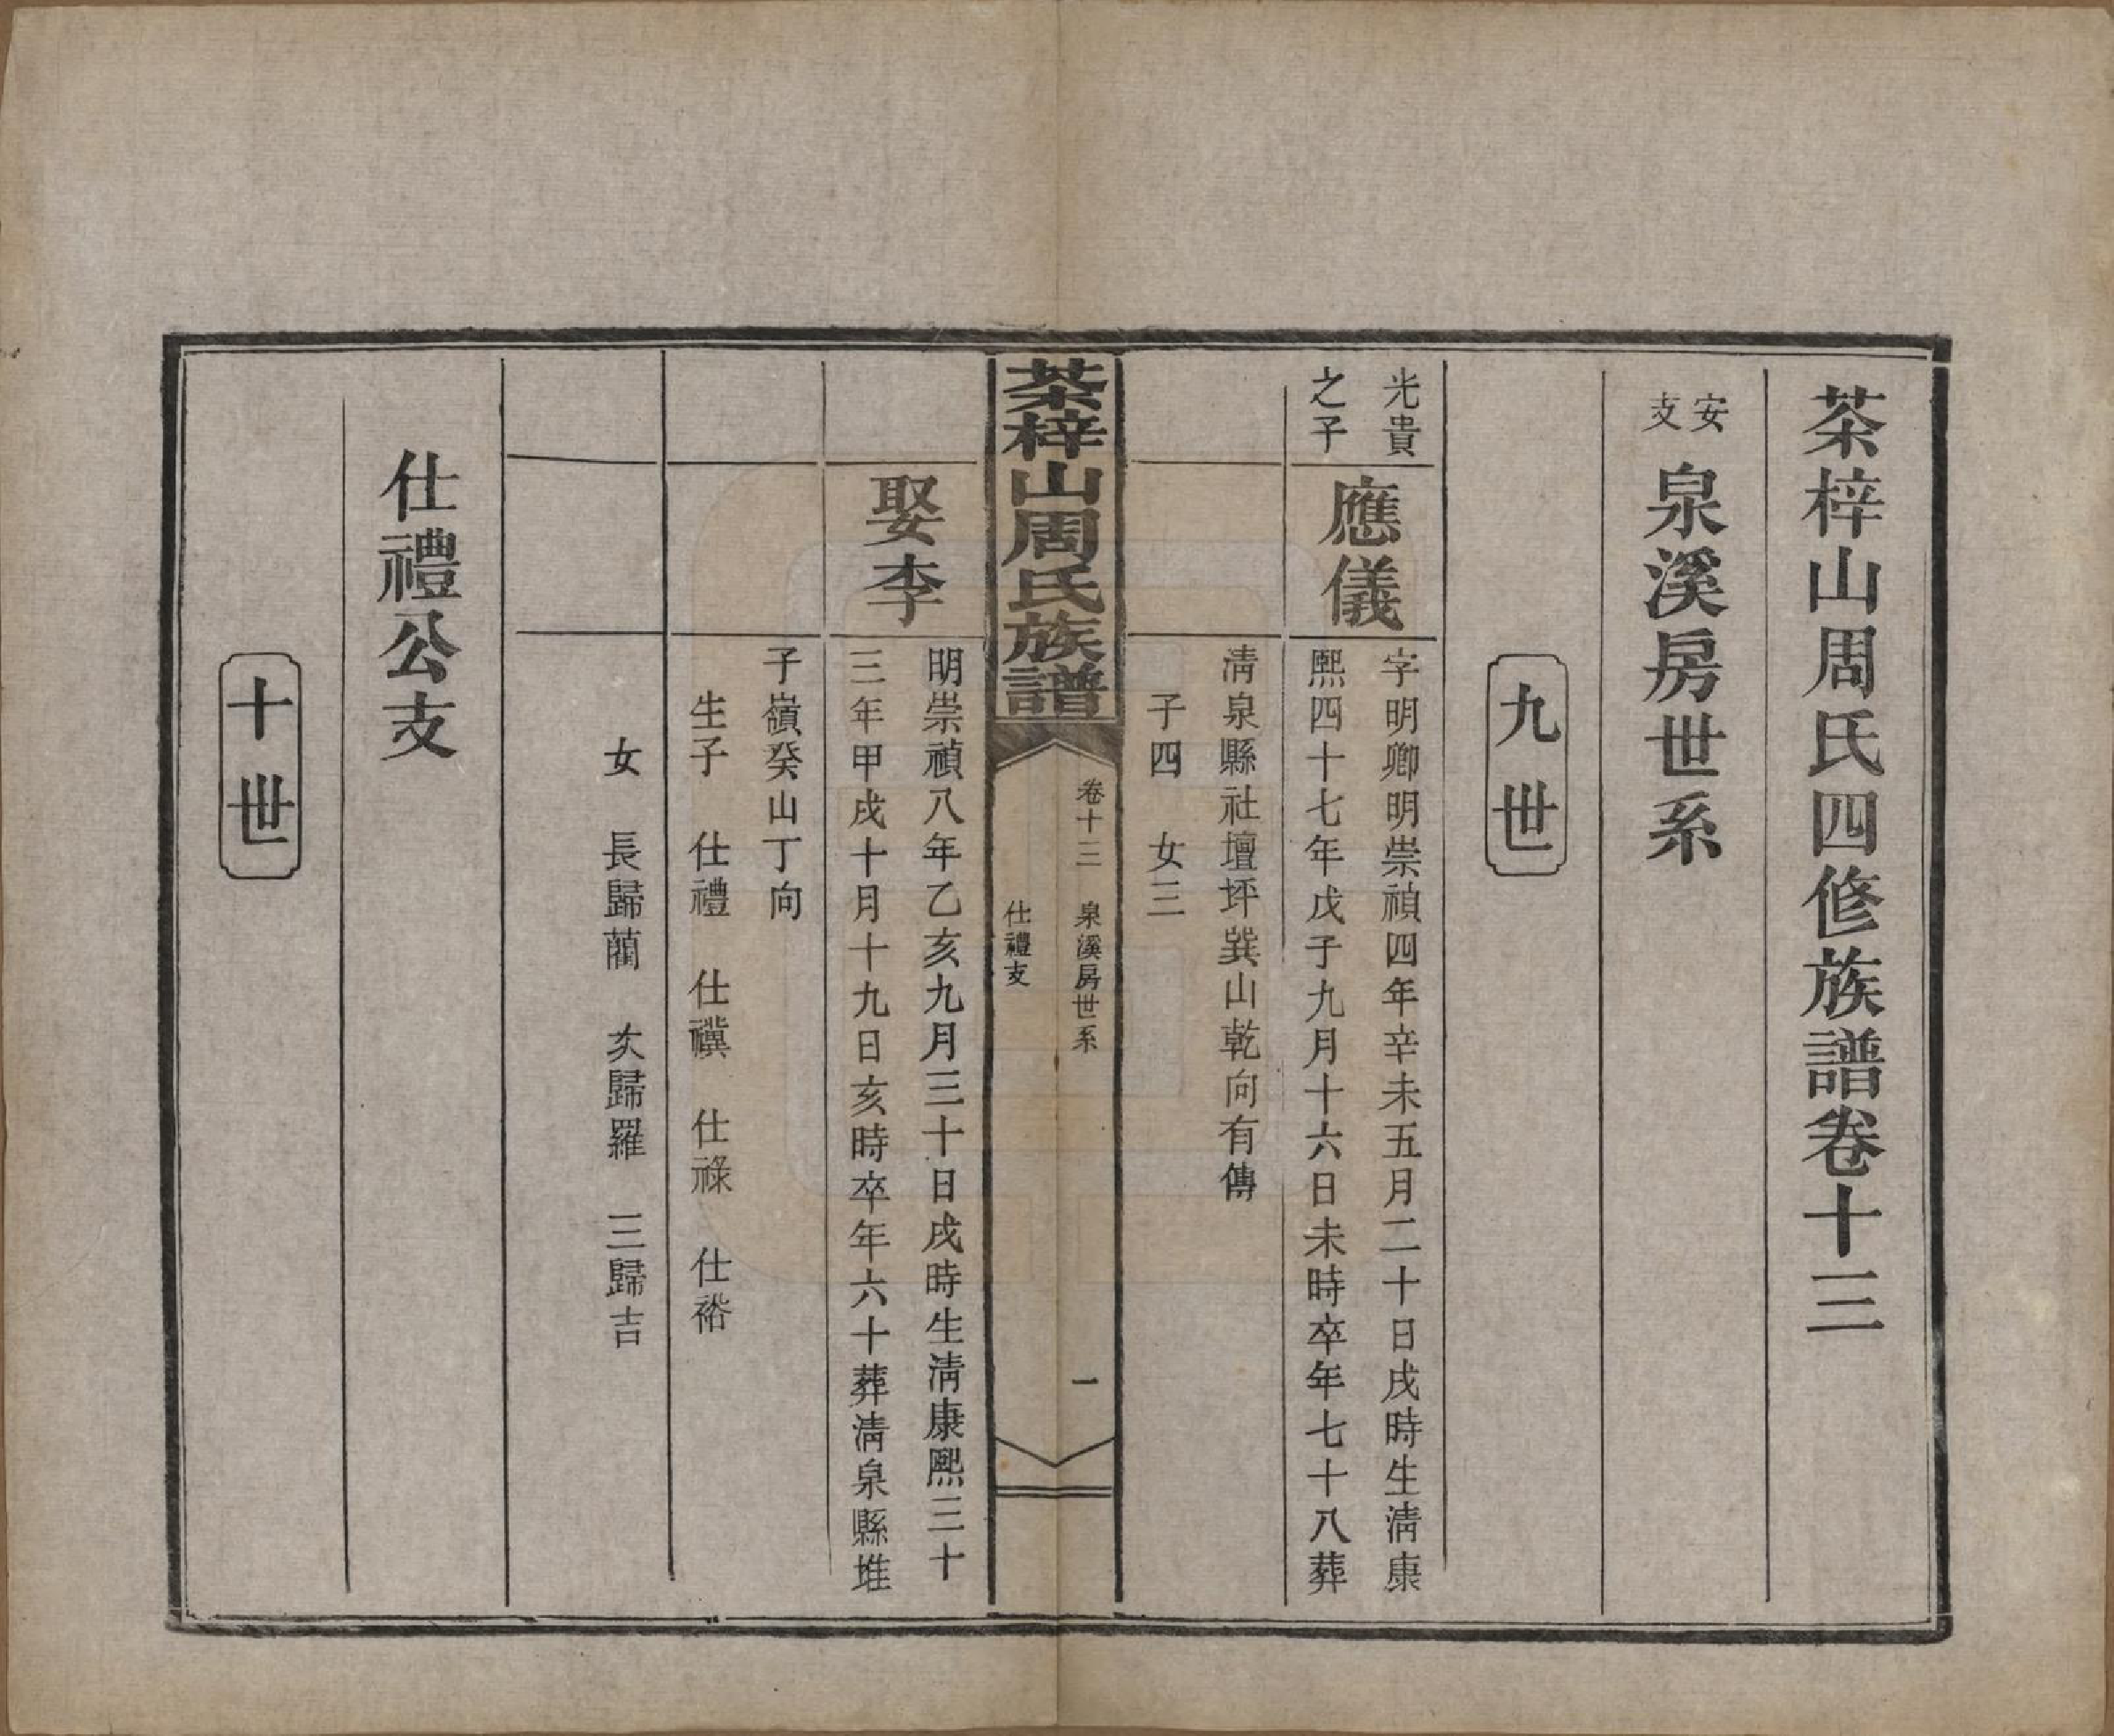 茶梓山周氏四修族譜卷十三
安支
泉溪房世系
九世
光貴
之子
應儀
字明卿明崇禎四年辛未五月二十日戌時生清康
熙四十七年戊子九月十六日未時卒年七十八葬
清泉縣社壇坪巽山乾向有傳
子四　女三
茶梓山周氏族譜
卷十三　泉溪房世系　一
仕禮支
娶李
明崇禎八年乙亥九月三十日戌時生清康熙三十
三年甲戌十月十九日亥時卒年六十葬清泉縣堆
子嶺癸山丁向
生子　仕禮　仕禩　仕祿　仕裕
女　長歸藺　次歸羅　三歸吉
仕禮公支
十世